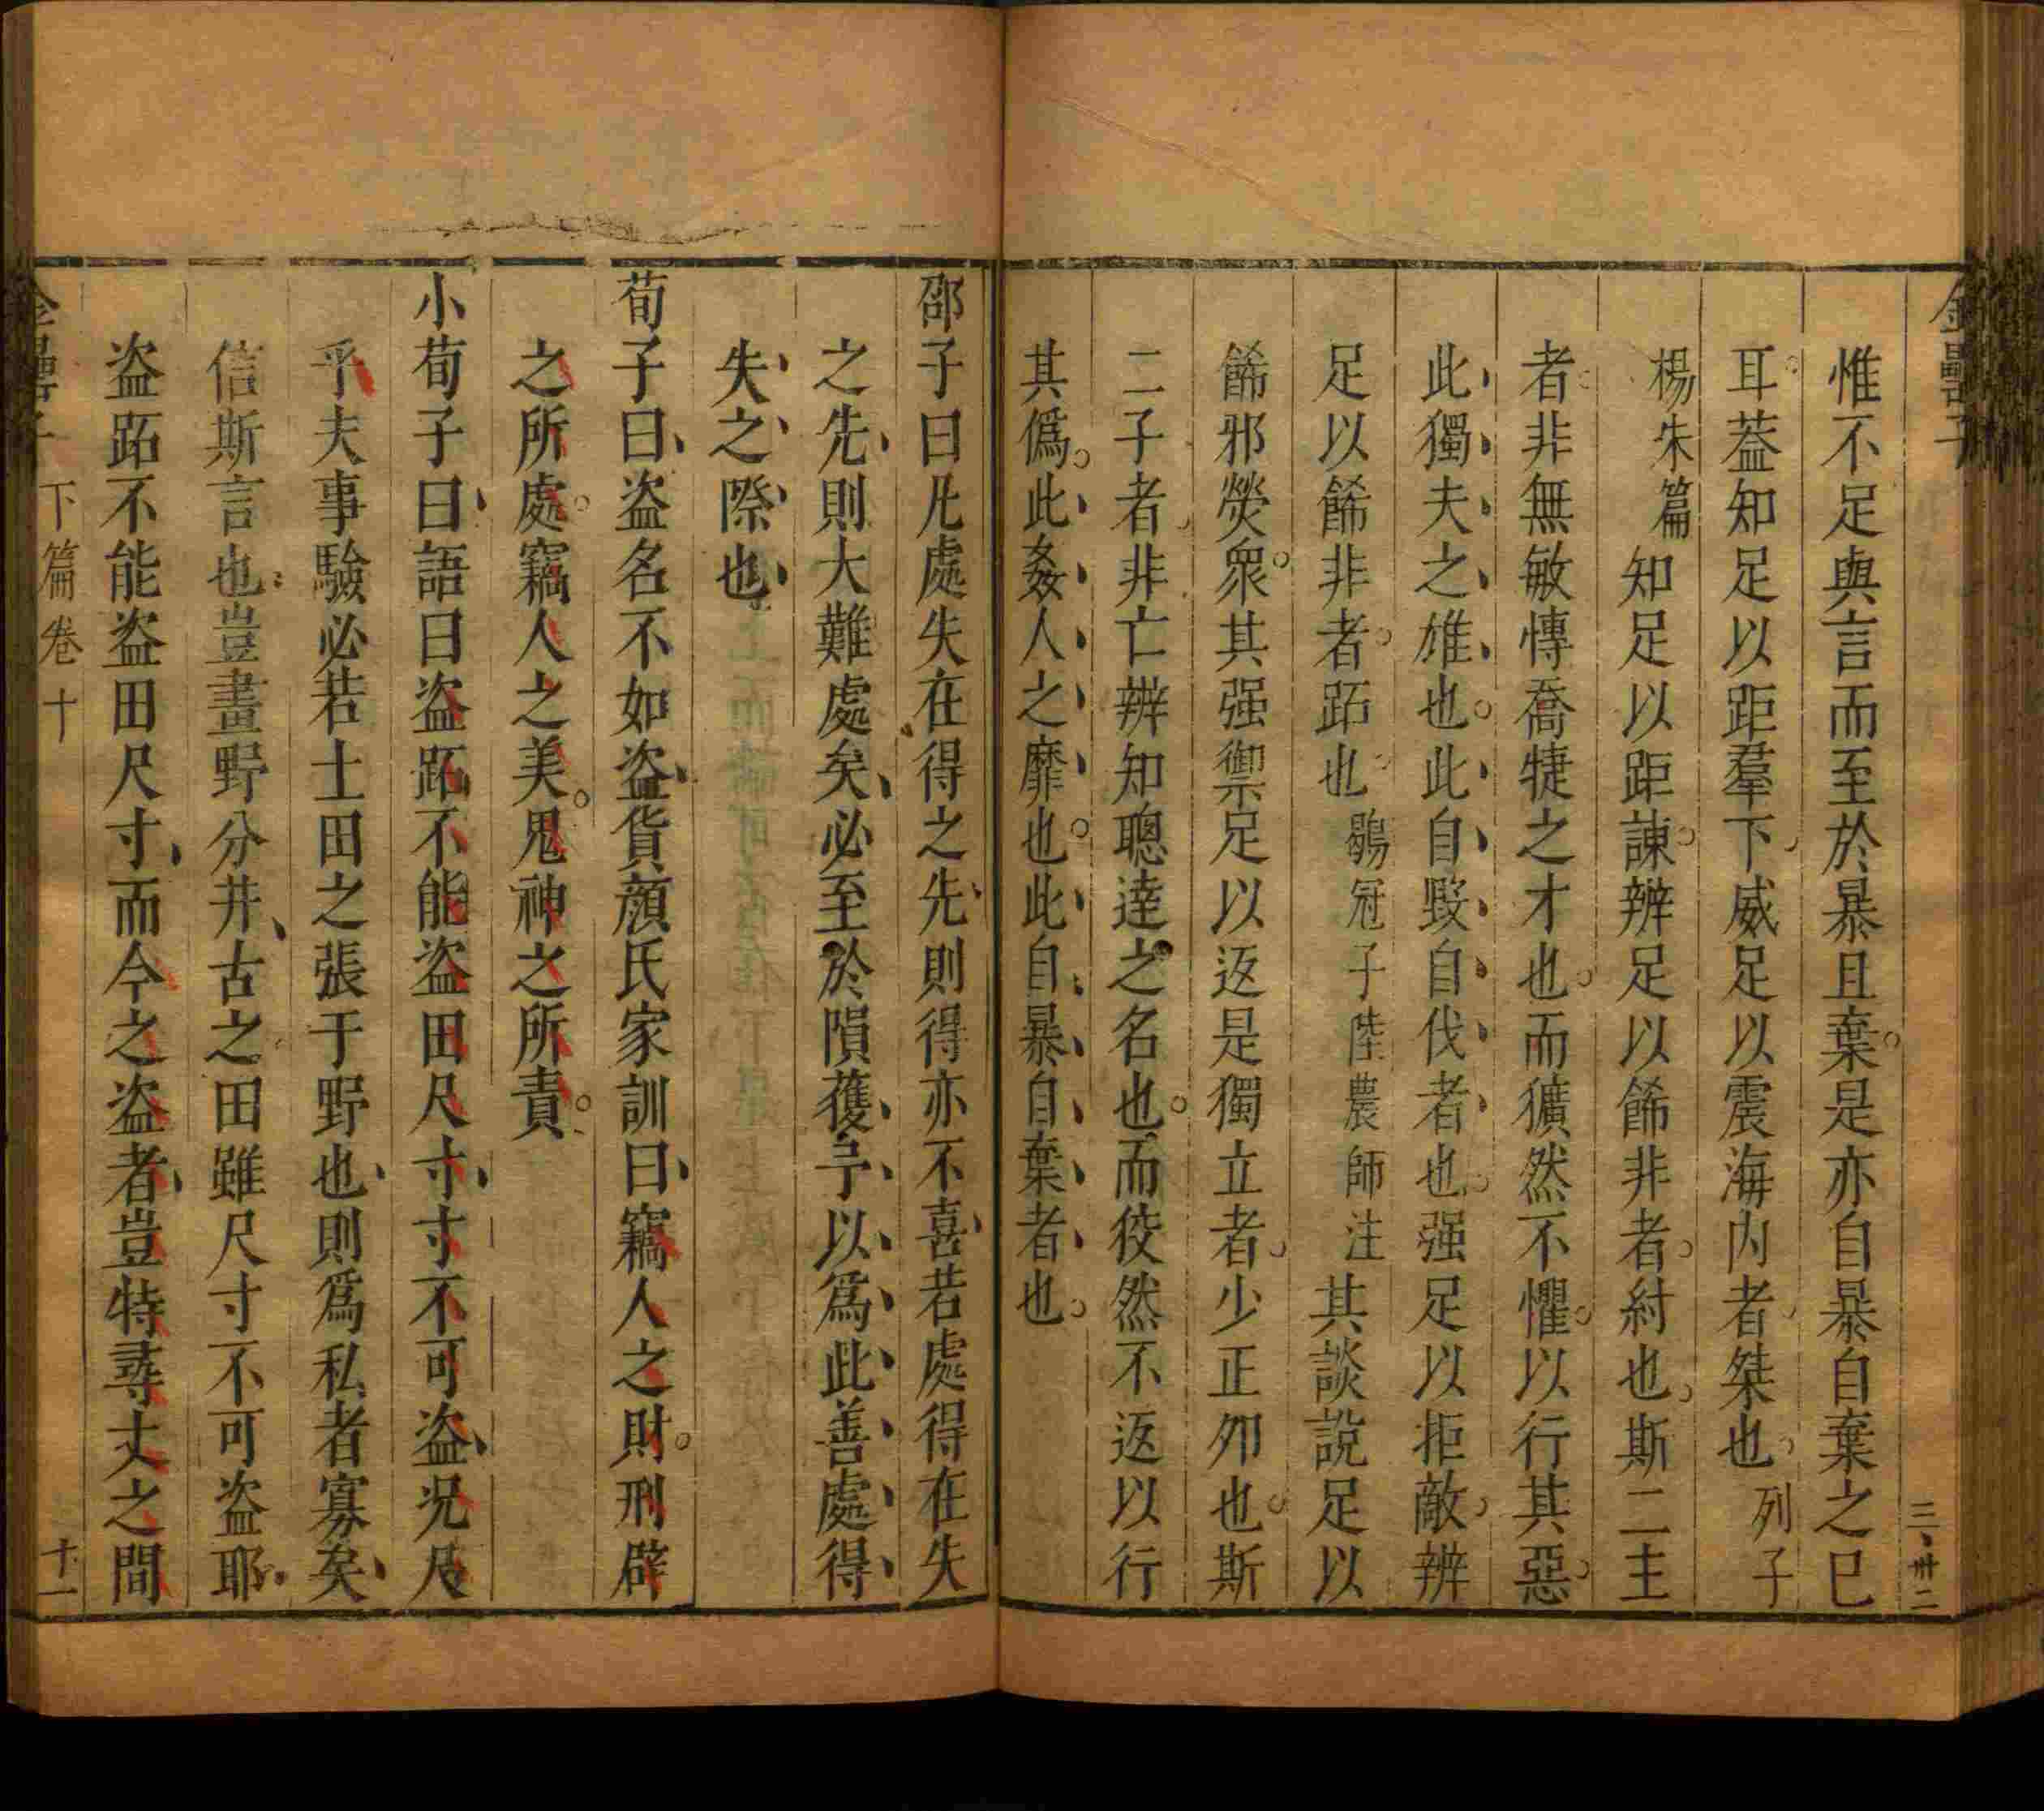 惟不足與言而至於暴且棄是亦自暴自棄之巳
耳葢知足以距羣下威足以震海内者桀也列子
楊朱篇知足以距諫辨足以餙非者紂也斯二主
者非無敏慱喬㨗之才也而獷然不懼以行其惡
此獨夫之雄也此自毀自伐者也强足以拒敵辨
足以餙非者跖也鶡冠子陸農師注其談説足以
餙邪熒衆其强禦足以返是獨立者少正夘也斯
二子者非亡辨知聰達之名也而佼然不返以行
其僞此姦人之靡也此自暴自棄者也
邵子曰凡處失在得之先則得亦不喜若處得在失
之先則大難處矣必至於隕䕶予以爲此善處得
失之際也
荀子曰盗名不如盗貨顔氏家訓曰竊人之財刑辟
之所處竊人之美鬼神之所責
小荀子曰語曰盗跖不能盗田尺寸寸不可盗况尺
乎夫事驗必若土田之張于野也則爲私者寡矣
信斯言也豈畫野分井古之田雖尺寸不可盗耶
盗跖不能盗田尺寸而今之盗者豈特尋丈之間
金罍子 下篇卷十 十一